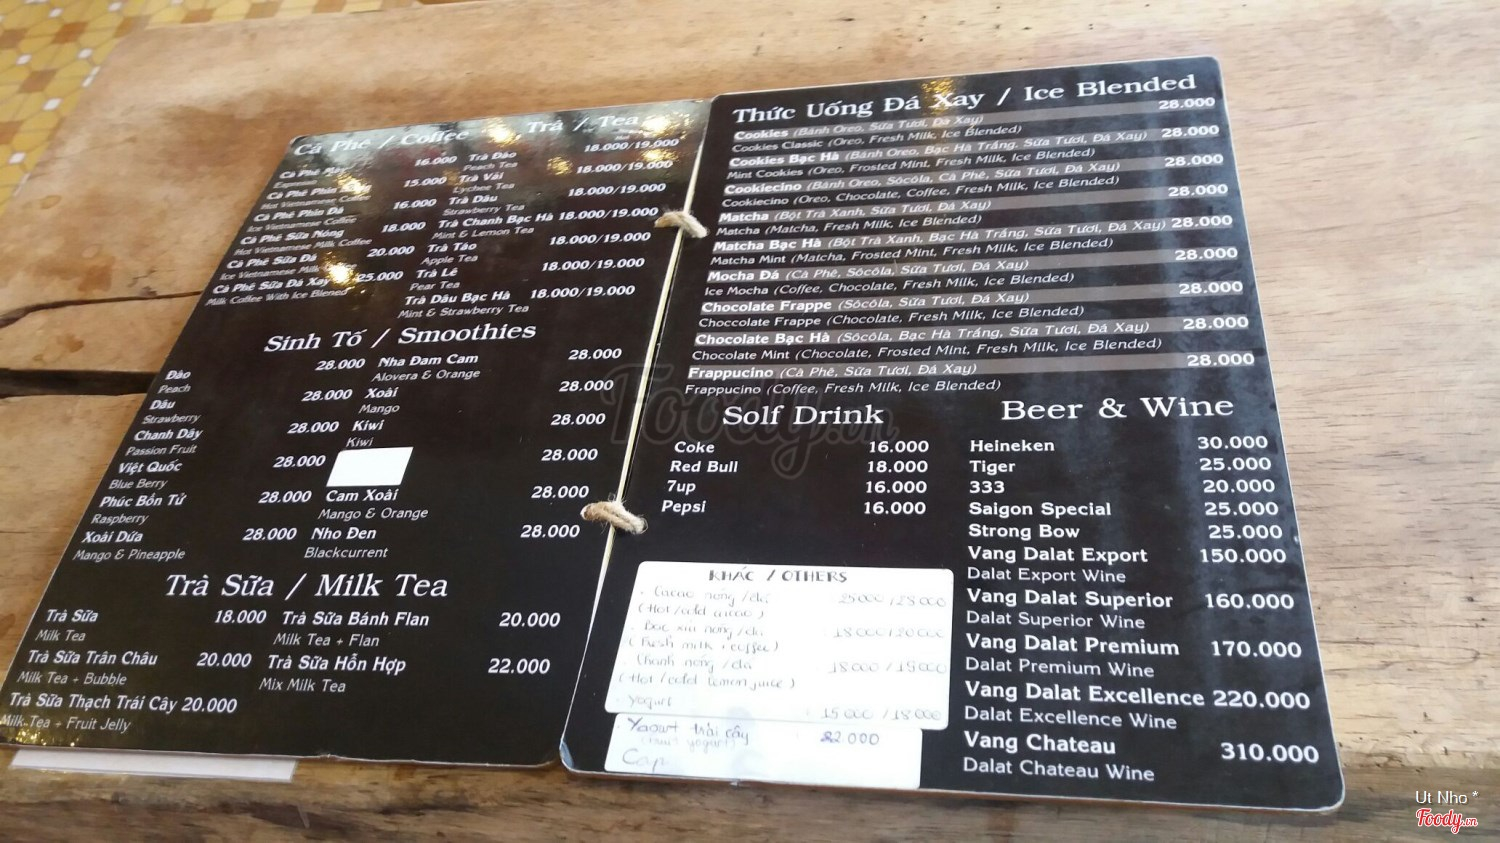 Cà Phê / Coffee
Cà Phê Máy 16.000
Espresso
Cà Phê Phin Nóng 15.000
Hot Vietnamese Coffee
Cà Phê Phin Đá 16.000
Ice Vietnamese Coffee
Cà Phê Sữa Nóng 18.000
Hot Vietnamese Milk Coffee
Cà Phê Sữa Đá 20.000
Ice Vietnamese Milk
Cà Phê Sữa Đá Xay 25.000
Milk Coffee With Ice Blened
Trà / Tea
Trà Đào 18.000/19.000
Peach Tea
Trà Vải 18.000/19.000
Lychee Tea
Trà Dâu 18.000/19.000
Strawberry Tea
Trà Chanh Bạc Hà 18.000/19.000
Mint & Lemon Tea
Trà Táo 18.000/19.000
Apple Tea
Trà Lê 18.000/19.000
Pear Tea
Trà Dâu Bạc Hà 18.000/19.000
Mint & Strawberry Tea
Sinh Tố / Smoothies
Đào 28.000
Peach
Dâu 28.000
Strawberry
Chanh Dây 28.000
Passion Fruit
Việt Quốc 28.000
Blue Berry
Phúc Bồn Tử 28.000
Raspberry
Xoài Dứa 28.000
Mango & Pineapple
Nha Đam Cam 28.000
Alovera & Orange
Xoài 28.000
Mango
Kiwi 28.000
Kiwi
28.000
Cam Xoài 28.000
Mango & Orange
Nho Đen 28.000
Blackcurrent
Trà Sữa / Milk Tea
Trà Sữa 18.000
Milk Tea
Trà Sữa Trân Châu 20.000
Milk Tea + Bubble
Trà Sữa Thạch Trái Cây 20.000
Milk Tea + Fruit Jelly
Trà Sữa Bánh Flan 20.000
Milk Tea + Flan
Trà Sữa Hỗn Hợp 22.000
Mix Milk Tea
Thức Uống Đá Xay / Ice Blended
Cookies (Bánh Oreo, Sữa Tươi, Đá Xay) 28.000
Cookies Classic (Oreo, Fresh Milk, Ice Blended)
Cookies Bạc Hà (Bánh Oreo, Bạc Hà Trắng, Sữa Tươi, Đá Xay) 28.000
Mint Cookies (Oreo, Frosted Mint, Fresh Milk, Ice Blended)
Cookiecino (Bánh Oreo, Sôcôla, Cà Phê, Sữa Tươi, Đá Xay) 28.000
Cookiecino (Oreo, Chocolate, Coffee, Fresh Milk, Ice Blended)
Matcha (Bột Trà Xanh, Sữa Tươi, Đá Xay) 28.000
Matcha (Matcha, Fresh Milk, Ice Blended)
Matcha Bạc Hà (Bột Trà Xanh, Bạc Hà Trắng, Sữa Tươi, Đá Xay) 28.000
Matcha Mint (Matcha, Frosted Mint, Fresh Milk, Ice Blended)
Mocha Đá (Cà Phê, Sôcôla, Sữa Tươi, Đá Xay) 28.000
Ice Mocha (Coffee, Chocolate, Fresh Milk, Ice Blended)
Chocolate Frappe (Sôcôla, Sữa Tươi, Đá Xay) 28.000
Choccolate Frappe (Chocolate, Fresh Milk, Ice Blended)
Chocolate Bạc Hà (Sôcôla, Bạc Hà Trắng, Sữa Tươi, Đá Xay) 28.000
Chocolate Mint (Chocolate, Frosted Mint, Fresh Milk, Ice Blended)
Frappucino (Cà Phê, Sữa Tươi, Đá Xay) 28.000
Frappucino (Coffee, Fresh Milk, Ice Blended)
Solf Drink
Coke 16.000
Red Bull 18.000
7up 16.000
Pepsi 16.000
KHÁC / OTHERS
. Cacao nóng /đá 25000 /28000
(Hot /cold cacao)
. Bạc xỉu nóng /đá 18000/20000
(Fresh milk + coffee)
. Chanh nóng /đá 18000 / 19000
(Hot /cold lemon juice)
. Yogurt 15000 /18000
Yaourt trái cây 22.000
(Fruit yogurt)
Beer & Wine
Heineken 30.000
Tiger 25.000
333 20.000
Saigon Special 25.000
Strong Bow 25.000
Vang Dalat Export 150.000
Dalat Export Wine
Vang Dalat Superior 160.000
Dalat Superior Wine
Vang Dalat Premium 170.000
Dalat Premium Wine
Vang Dalat Excellence 220.000
Dalat Excellence Wine
Vang Chateau 310.000
Dalat Chateau Wine
Foody.vn
Ut Nho *
Foody.vn